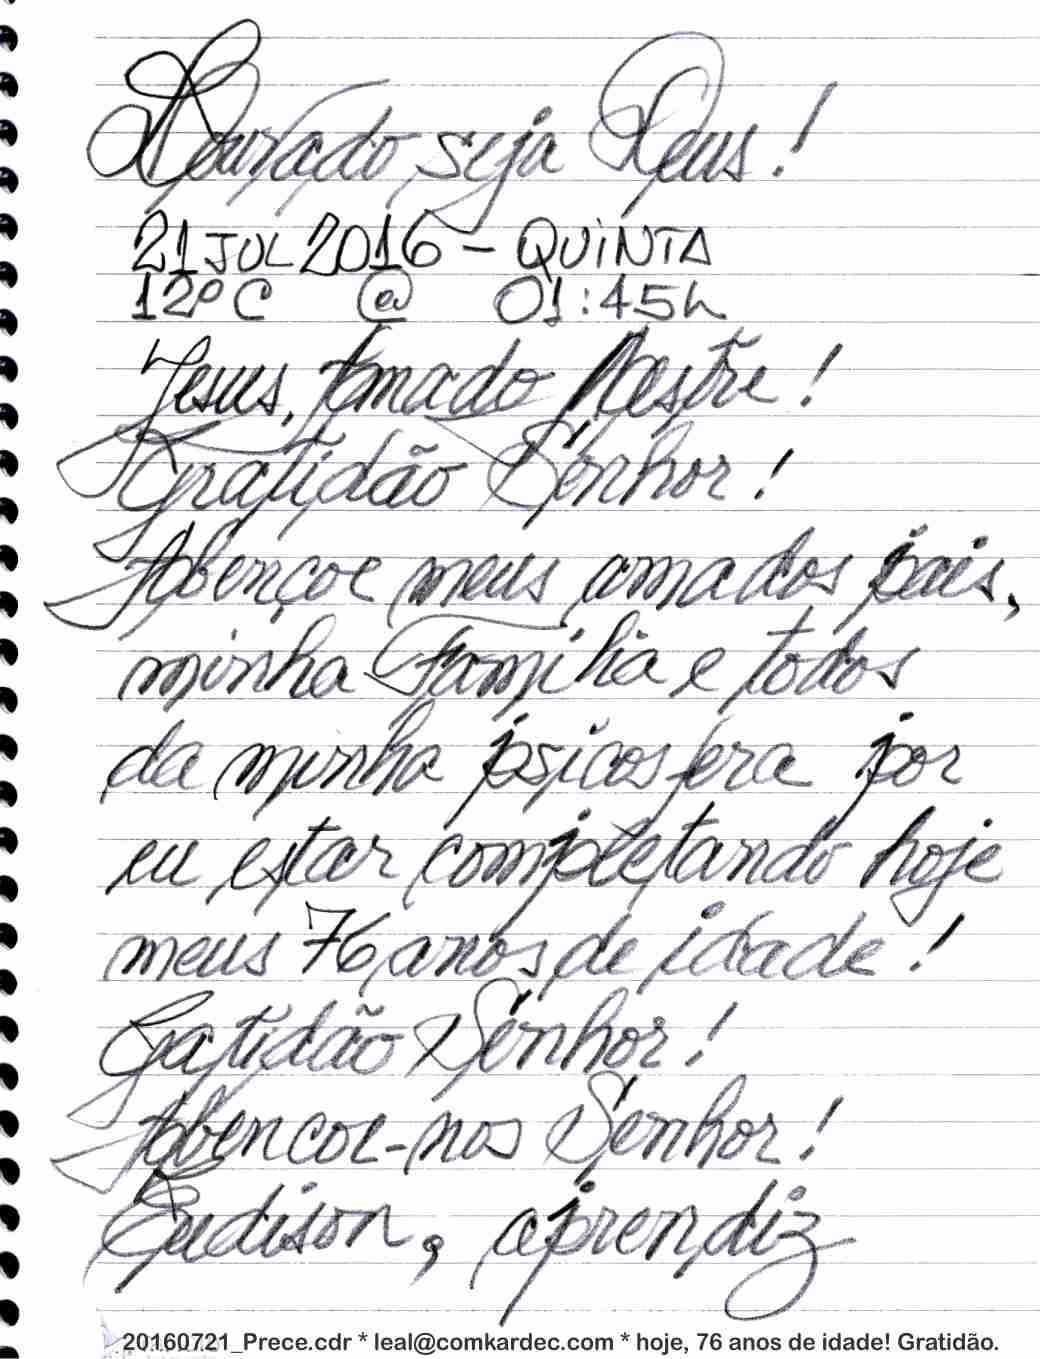 Louvado seja Deus!
21 JUL 2016 - QUINTA
12ºC @ 01:45h
Jesus, Amado Mestre!
Gratidão Senhor!
Abençoe meus amados pais,
minha Família e todos
da minha psicosfera por
eu estar completando hoje
meus 76 anos de idade!
Gatidão Senhor!
Abencoe-nos Senhor!
Eudison, aprendiz
20160721_Prece.cdr * leal@comkardec.com * hoje, 76 anos de idade! Gratidão.